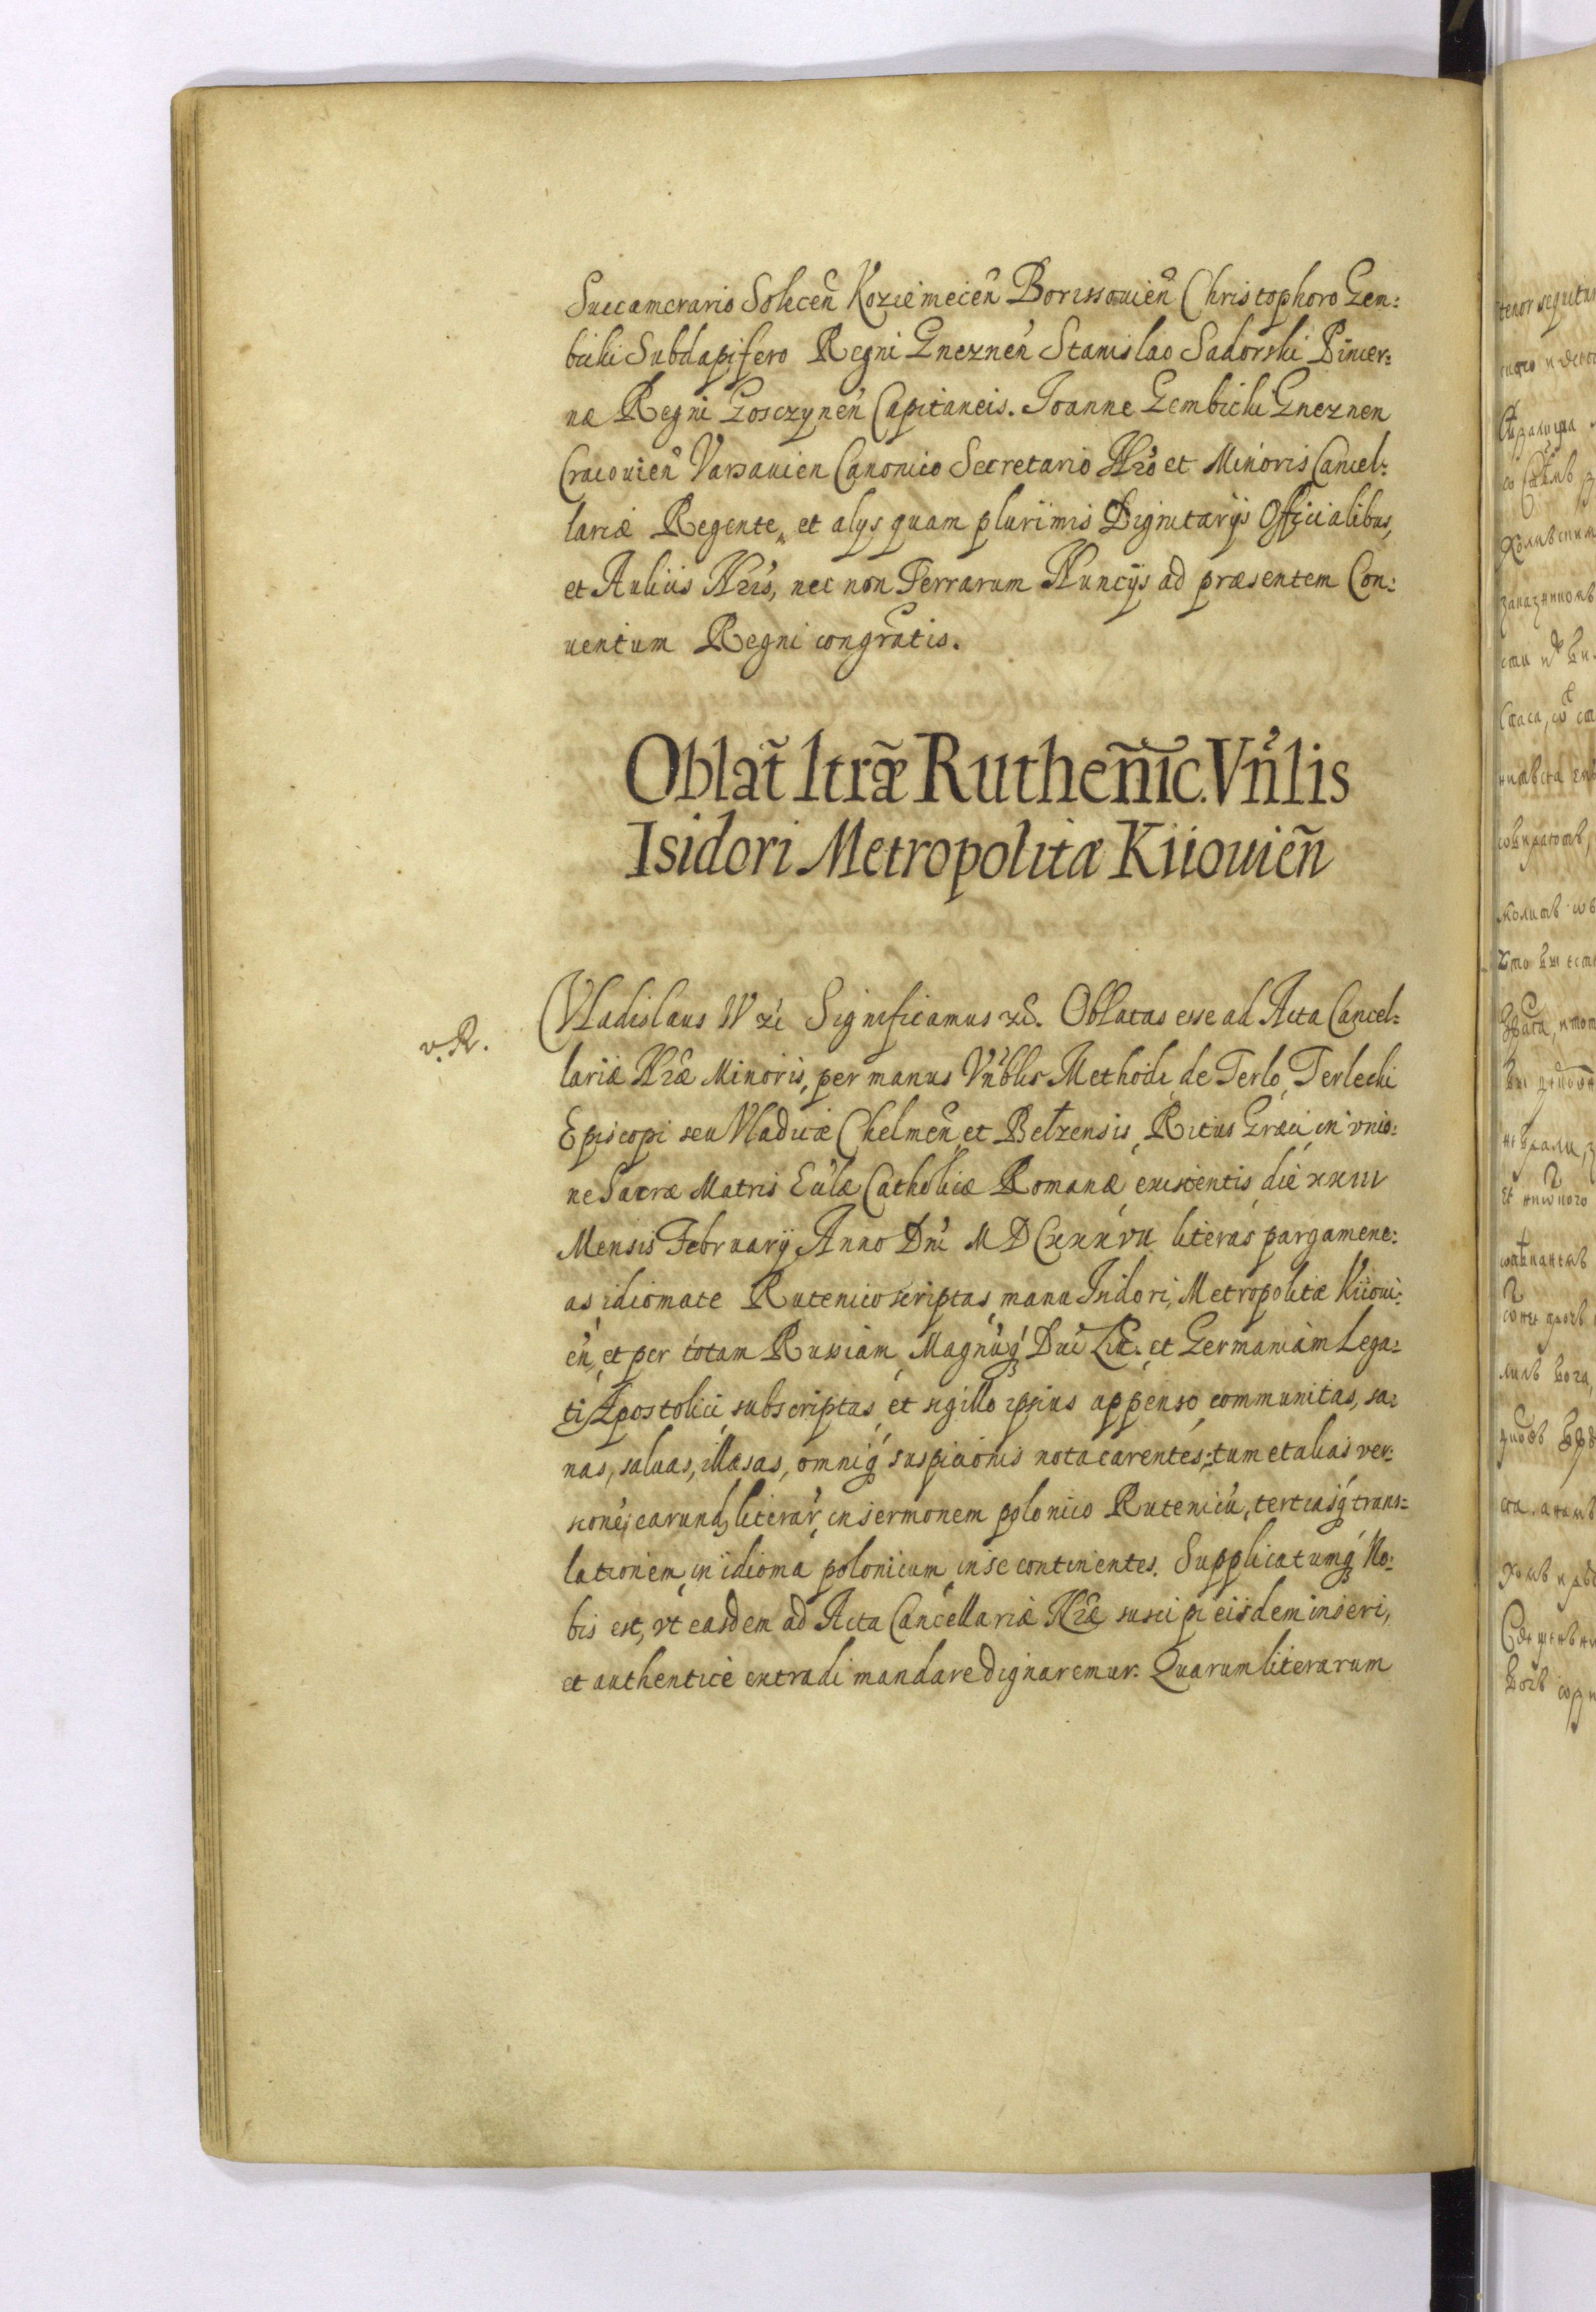 Succamerario Solecen̄ Koziemecen̄ Borissouien̄ Christophoro Gem:
bicki Subdapifero Regni Gneznen̄ Stanislao Sadorski Pincer:
næ Regni Gosczynen̄ Capitaneis. Joanne Gembicki Gneznen
Cracouien̄ Varsauien Canonico Secretario Nro et Minoris Cancel:
lariæ Regente, et alys quam plurimis Dignitarijs Officialibus,
et Aulicis Nris, nec non Terrarum Nuncijs ad præsentem Con:
uentum Regni congratis.
Oblat̃ ltrãe Ruthen̄ic. Vn̄lis
Isidori Metropolitæ Kiiouien̄
v. R.
Vladislaus IV zc Significamus zc. Oblatas esse ad Acta Cancel:
lariæ Nræ Minoris, per manus Vn̄blis Methodi de Terlo Terlecki
Episcopi seu Vladicæ Chelmen̄ et Belzensis Ritus Græci in vnio:
ne Sacræ Matris Ecclæ Catholicæ Romanæ existentis die xxiii
Mensis February Anno Dni MDCxxxvii literas pargamene:
as idiomate Rutenico scriptas manu Isidori, Metropolitæ Kiioui:
en̄, et per totam Russiam Magnuq́ Duc̄ Lit̄. et Germaniam Lega:
ti Apostolici subscriptas et sigillo ipsius appenso communitas, sa:
nas, saluas, illæsas, omniq́ suspicionis nota carentes, tum et alias ver:
sione earund, literar̄ in sermonem polonico Rutenicū, tertiasq́ trans:
lationem in idioma polonicum in se continentes. Supplicatumq́ No:
bis est, vt easdem ad Acta Cancellariæ Nræ suscipi eisdem inseri,
et authentice extradi mandare dignaremur. Quarum literarum
tenor sequitur